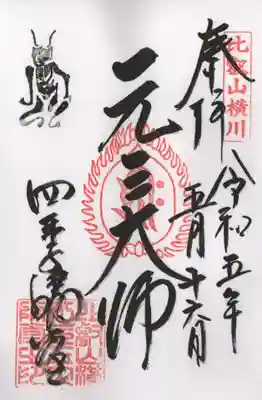 比叡山横川
奉拝
令和五年
五月十六日
元三大師
四季講堂